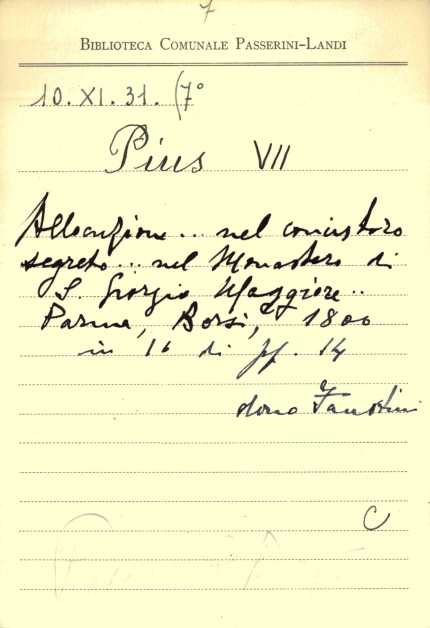 7
BIBLIOTECA COMUNALE PASSERINI-LANDI
10. XI. 31. (7°
Pius VII
Allocuzione... nel concistoro
segreto... nel Monastero di
S. Giorgio Maggiore..
Parma, Borsi, 1800
in 16 di pp. 14
dono Faustini
C